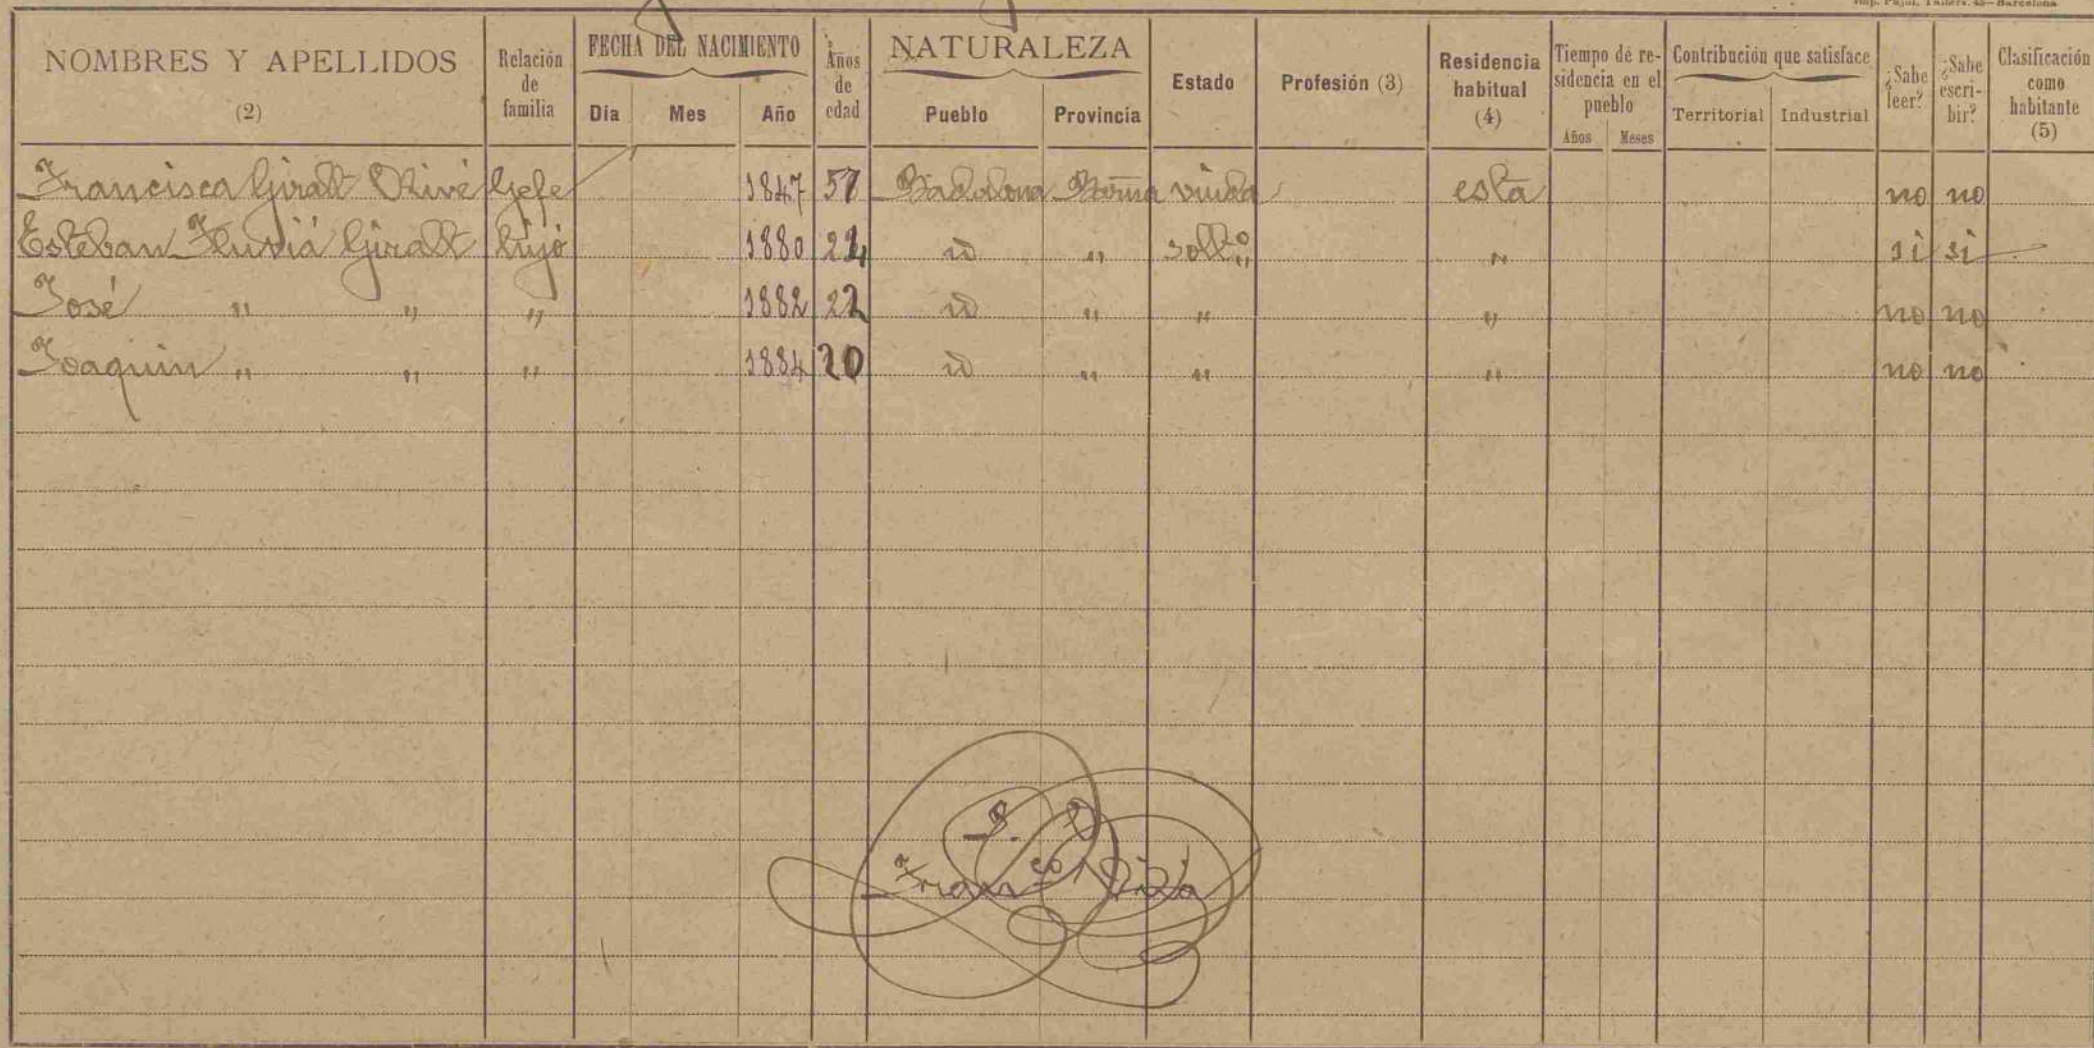 Imp. Pujol, Tallers. 45—Barcelona
NOMBRES Y APELLIDOS (2) Relación de familia FECHA DEL NACIMIENTO Día Mes Año Años de edad NATURALEZA Pueblo Provincia Estado Profesión (3) Residencia habitual (4) Tiempo de residencia en el pueblo Años Meses Contribución que satisface Territorial Industrial ¿Sabe leer? ¿Sabe escribir? Clasificación como habitante (5)
Francisca Giralt Olivé Gefe 1847 57 Badalona viuda esta no no
Esteban Fluviá Giralt hijo 1880 24 id " solt.o " si si
José " " " 1882 22 id " " " no no
Joaquin " " " 1884 20 id " " " no no
Fran.co